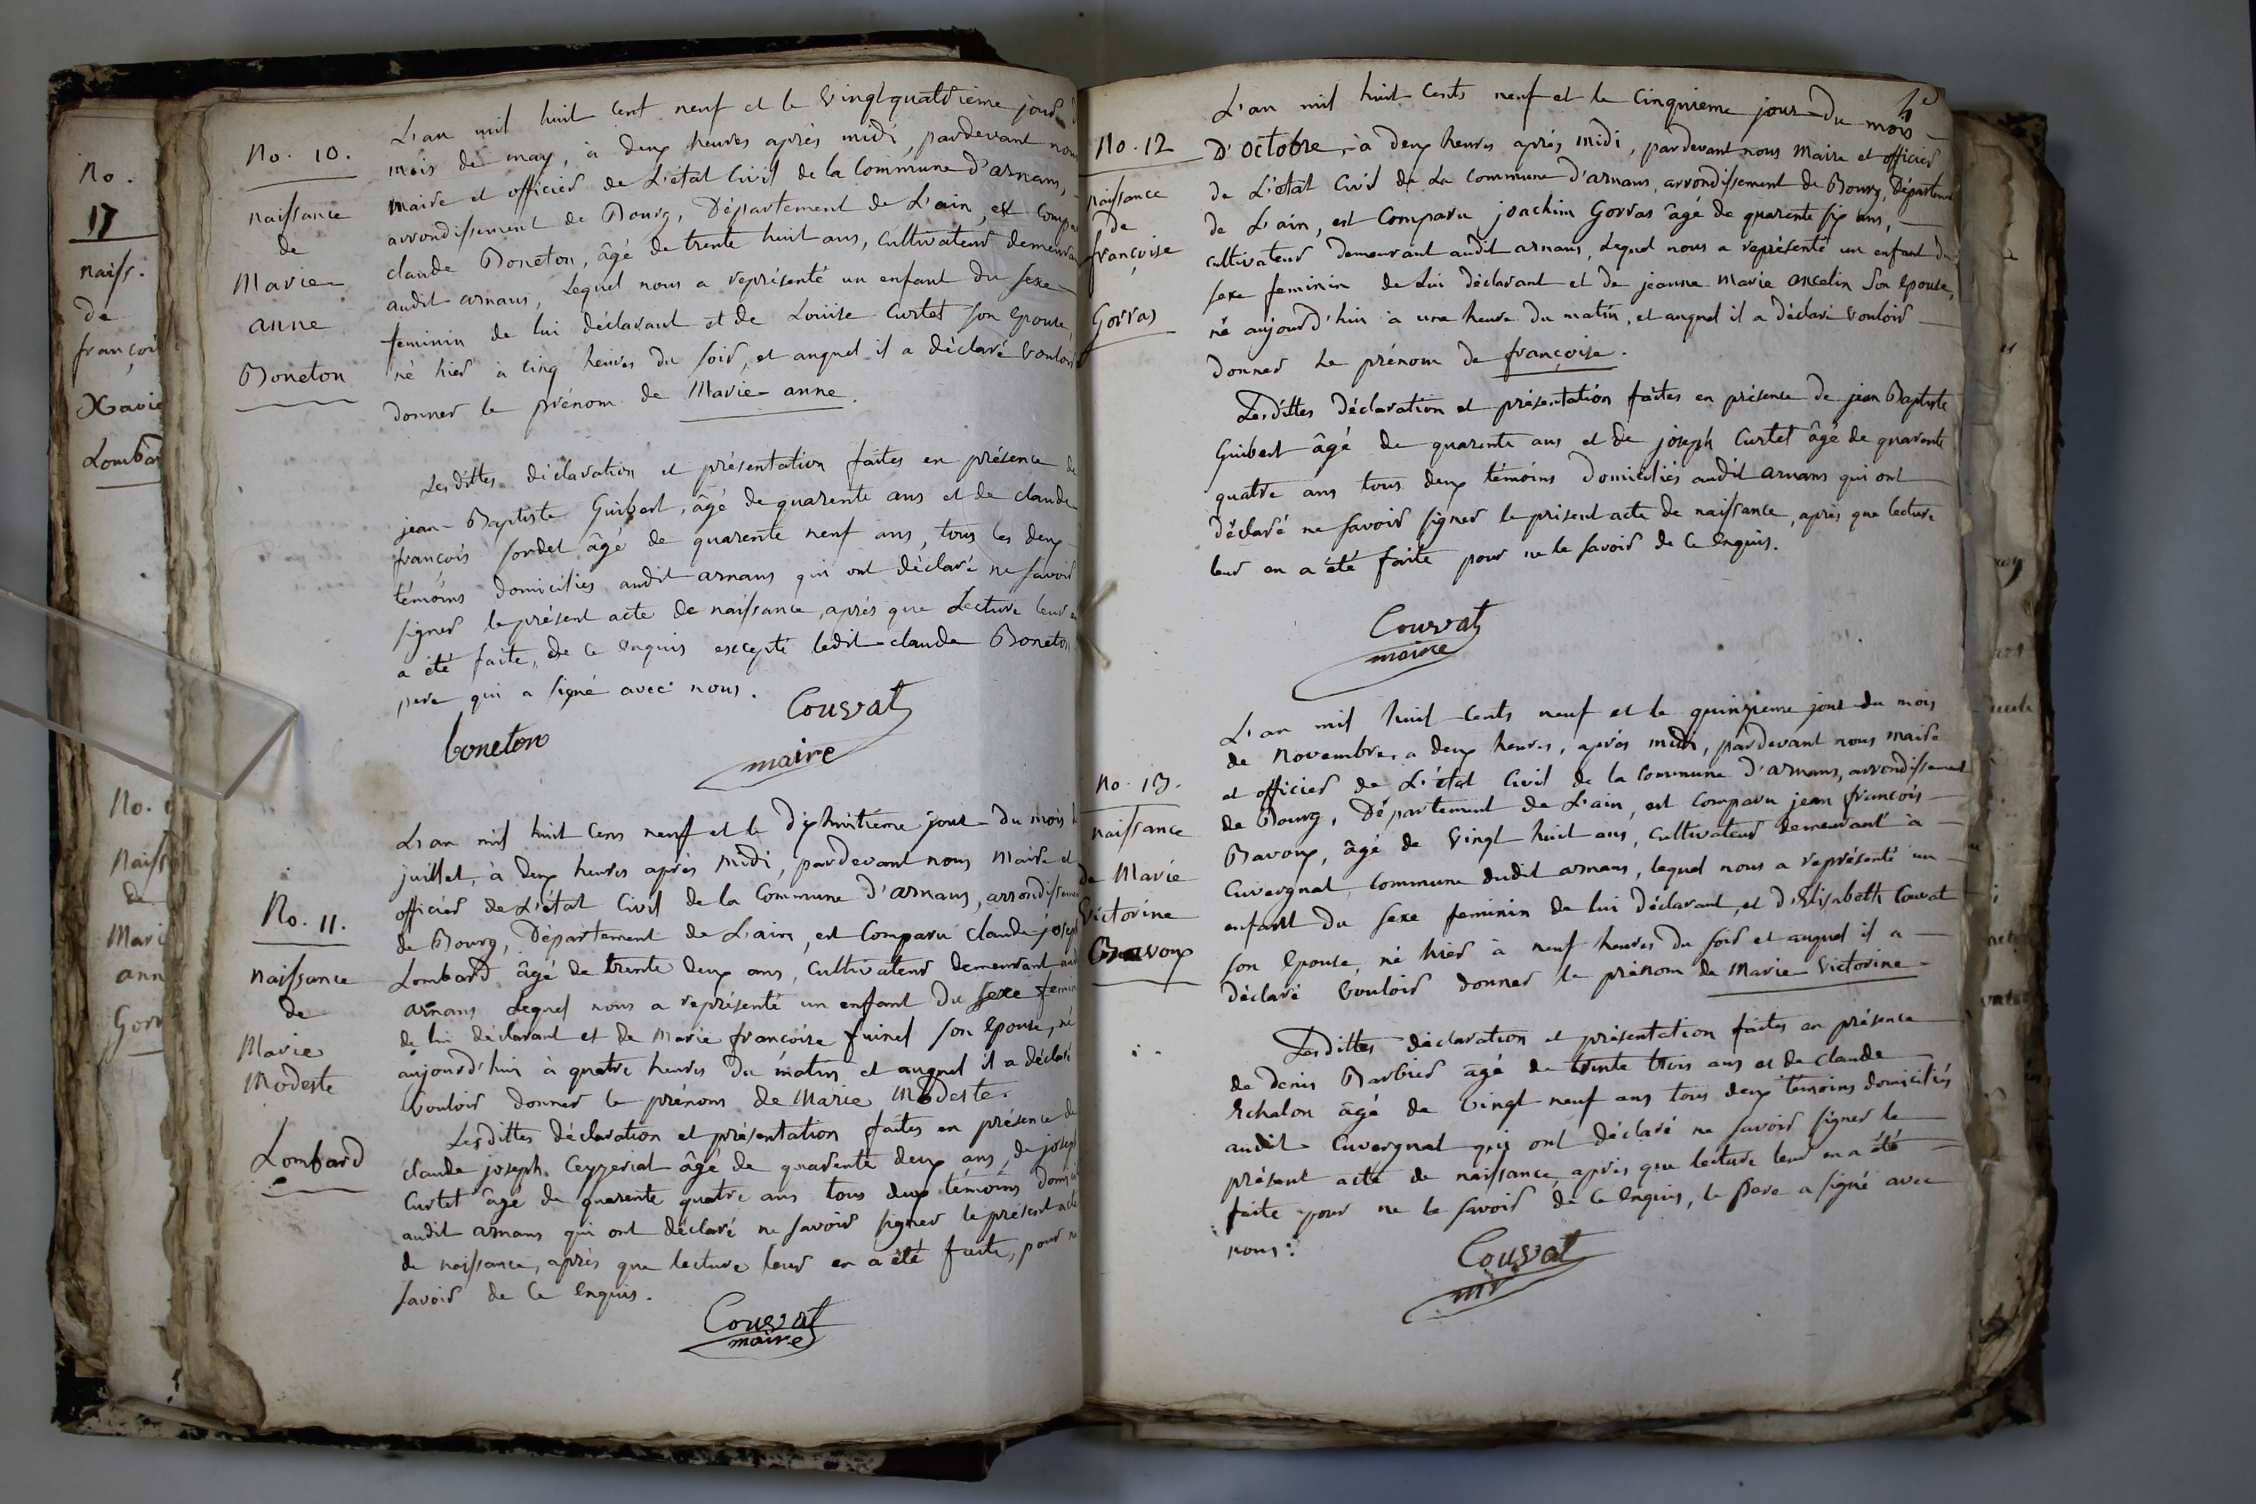 No.
17
naiss.
de
françoi
Xavie
Lombar
No.
Naiss
de
Mari
ann
Gorr
No. 10.
naissance
de
Marie
anne
Boneton
L'an mil huit cent neuf et le vingt quatrieme jour
mois de may, à deux heures après midi, pardevant nous
maire et officier de L'état Civil de la Commune d'arnans,
arrondissement de Bourg, Département de L'ain, est Compa
claude Boneton, âgé de trente huit ans, Cultivateur demeuran
audit arnans, Lequel nous a représenté un enfant du sexe
feminin de lui déclarant et de Louise Curtet son épouse,
né hier à cinq heures du soir, et auquel il a déclaré vouloir
donner le prénom de Marie-anne.
Lesdittes déclaration et présentation faites en présence de
jean-Baptiste Guibert, âgé de quarente ans et de claude
françois sordet âgé de quarente neuf ans, tous les deux
témoins domiciliés audit arnans qui ont déclaré ne savoir
signer le présent acte de naissance, après que Lecture leur en
a été faite, de ce enquis excepté ledit claude Boneton
pere qui a signé avec nous.
boneton
Couvat
maire
No. 11.
naissance
de
Marie
Modeste
Lombard
L'an mil huit cens neuf et le dixhuitieme jour du mois
juillet, à deux heures après midi, pardevant nous Maire et
officier de L'état Civil de la Commune d'arnans, arrondisseme
de Bourg, Département de L'ain, est Comparu claude joseph
Lombard âgé de trente deux ans, Cultivateur demeurant aud
arnans Lequel nous a représenté un enfant du sexe femin
de lui déclarant et de Marie françoise fuinel son épouse, né
aujourd'hui à quatre heures du matin et auquel il a déclaré
vouloir donner le prénom de Marie Modeste.
Lesdittes déclaration et présentation faites en présence de
claude joseph Ceyzeriat âgé de quarente deux ans, de joseph
Curtet âgé de quarente quatre ans tous deux témoins domici
audit arnans qui ont déclaré ne savoir signer le présent acte
de naissance, après que lecture leur en a été faite, pour ne
savoir de ce enquis.
Couvat
maire
No. 12
naissance
de
françoise
Gorras
L'an mil huit cents neuf et le cinquieme jour du mois
D'octobre, à deux heures après midi, pardevant nous Maire et officier
de L'état Civil de la Commune d'arnans, arrondissement de Bourg, Département
de L'ain, est Comparu joachim Gorras âgé de quarente six ans,
cultivateur demeurant audit arnans, lequel nous a représenté un enfant du
sexe feminin de lui déclarant et de jeanne Marie ancelin son épouse,
né aujourd'hui à une heure du matin, et auquel il a déclaré vouloir
donner le prénom de françoise.
Lesdittes déclaration et présentation faites en présence de jean Baptiste
Guibert âgé de quarente ans et de joseph Curtet âgé de quarente
quatre ans tous deux témoins domiciliés audit arnans qui ont
déclaré ne savoir signer le présent acte de naissance, après que lecture
leur en a été faite pour ne le savoir de ce enquis.
Couvat
maire
No. 13.
naissance
de Marie
Victorine
Bavoux
L'an mil huit cents neuf et le quinzieme jour du mois
de novembre, a deux heures, après midi, pardevant nous maire
et officier de L'état Civil de la Commune d'arnans, arrondissement
de Bourg, Département de L'ain, est Comparu jean françois
Bavoux, âgé de vingt huit ans, Cultivateur demeurant à
Cuvergnat, Commune dudit arnans, lequel nous a représenté un
enfant du sexe feminin de lui déclarant, et d'Elisabeth Couvat
son épouse, né hier à neuf heures du soir et auquel il a
déclaré vouloir donner le prénom de Marie Victorine.
Lesdittes déclaration et présentation faites en présence
de denis Barbier âgé de trente trois ans et de claude
Echalon âgé de vingt neuf ans tous deux témoins domiciliés
audit Cuvergnat qui ont déclaré ne savoir signer le
présent acte de naissance, après que lecture leur en a été
faite pour ne le savoir de ce enquis, le pere a signé avec
nous:
Couvat
mr